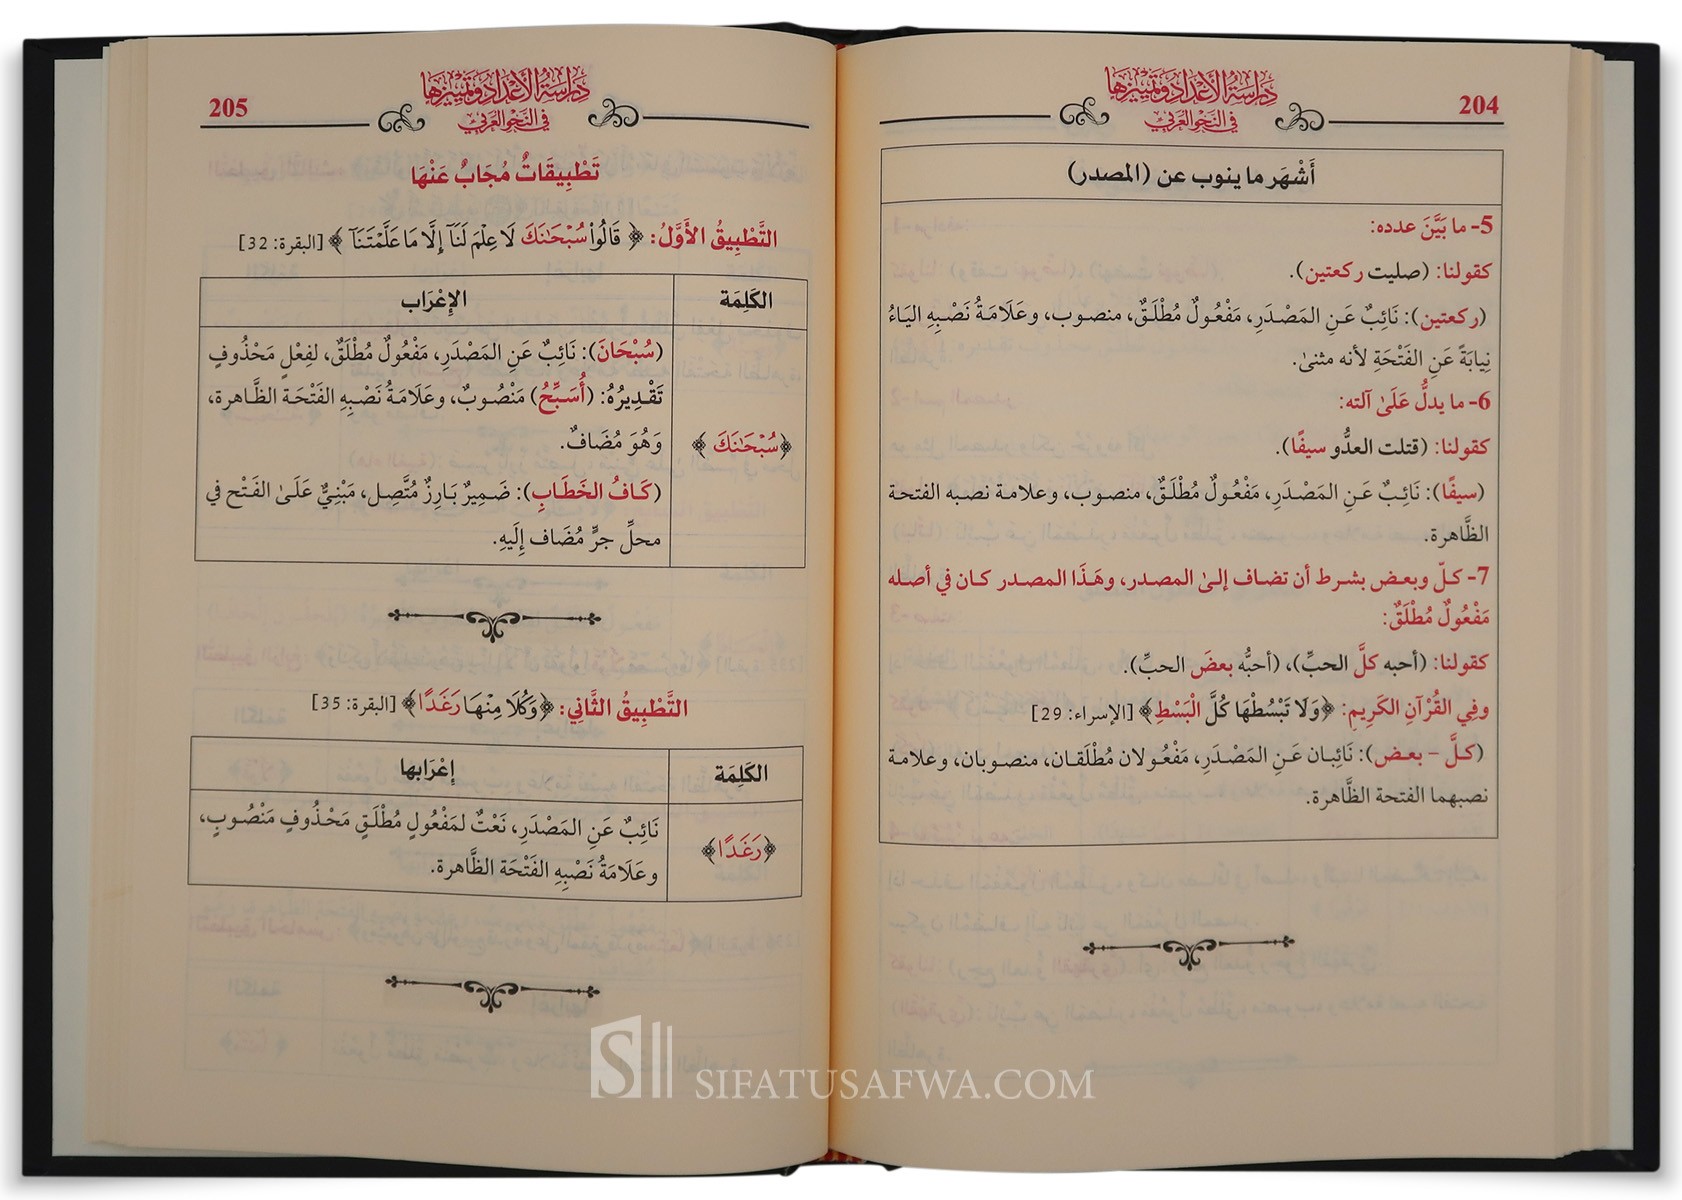 204
دراسة الأعداد وتمييزها
في النحو العربي
أَشْهَر ما ينوب عن (المصدر)
5- ما بَيَّنَ عدده:
كقولنا: (صليت ركعتين).
(ركعتين): نَائِبٌ عَنِ المَصْدَرِ، مَفْعُولٌ مُطْلَقٌ، منصوب، وعَلَامَةُ نَصْبِهِ اليَاءُ
نِيابَةً عَنِ الفَتْحَةِ لأنه مثنىٰ.
6- ما يدلُّ عَلَىٰ آلته:
كقولنا: (قتلت العدُّو سيفًا).
(سيفًا): نَائِبٌ عَنِ المَصْدَرِ، مَفْعُولٌ مُطْلَقٌ، منصوب، وعلامة نصبه الفتحة
الظَّاهرة.
7- كلّ وبعض بشرط أن تضاف إلىٰ المصدر، وهَذَا المصدر كان في أصله
مَفْعُولٌ مُطْلَقٌ:
كقولنا: (أحبه كلَّ الحبِّ)، (أحبُّه بعضَ الحبِّ).
وفِي القُرْآنِ الكَرِيمِ: ﴿وَلَا تَبْسُطْهَا كُلَّ الْبَسْطِ﴾ [الإسراء: 29]
(كلَّ – بعض): نَائِبان عَنِ المَصْدَرِ، مَفْعُولان مُطْلَقان، منصوبان، وعلامة
نصبهما الفتحة الظَّاهرة.
205
دراسة الأعداد وتمييزها
في النحو العربي
تَطْبِيقَاتٌ مُجَابٌ عَنْهَا
التَّطْبِيقُ الأَوَّلُ: ﴿ قَالُوا۟ سُبْحَـٰنَكَ لَا عِلْمَ لَنَآ إِلَّا مَا عَلَّمْتَنَآ ﴾ [البقرة: 32]
الكَلِمَة الإِعْرَاب
﴿سُبْحَـٰنَكَ ﴾
(سُبْحَانَ): نَائِبٌ عَنِ المَصْدَرِ، مَفْعُولٌ مُطْلَقٌ، لفِعْلٍ مَحْذُوفٍ
تَقْدِيرُهُ: (أُسَبِّحُ) مَنْصُوبٌ، وعَلَامَةُ نَصْبِهِ الفَتْحَة الظَّاهرة،
وَهُوَ مُضَافٌ.
(كَافُ الخَطَابِ): ضَمِيرٌ بَارِزٌ مُتَّصِل، مَبْنِيٌّ عَلَىٰ الفَتْح في
محلِّ جرٍّ مُضَاف إِلَيهِ.
التَّطْبِيقُ الثَّانِي: ﴿وَكُلَا مِنْهَا رَغَدًا﴾ [البقرة: 35]
الكَلِمَة إعْرَابها
﴿رَغَدًا﴾
نَائِبٌ عَنِ المَصْدَرِ، نَعْتٌ لمَفْعُولٍ مُطْلَقٍ مَحْذُوفٍ مَنْصُوبٍ،
وعَلَامَةُ نَصْبِهِ الفَتْحَة الظَّاهرة.
SIFATUSAFWA.COM